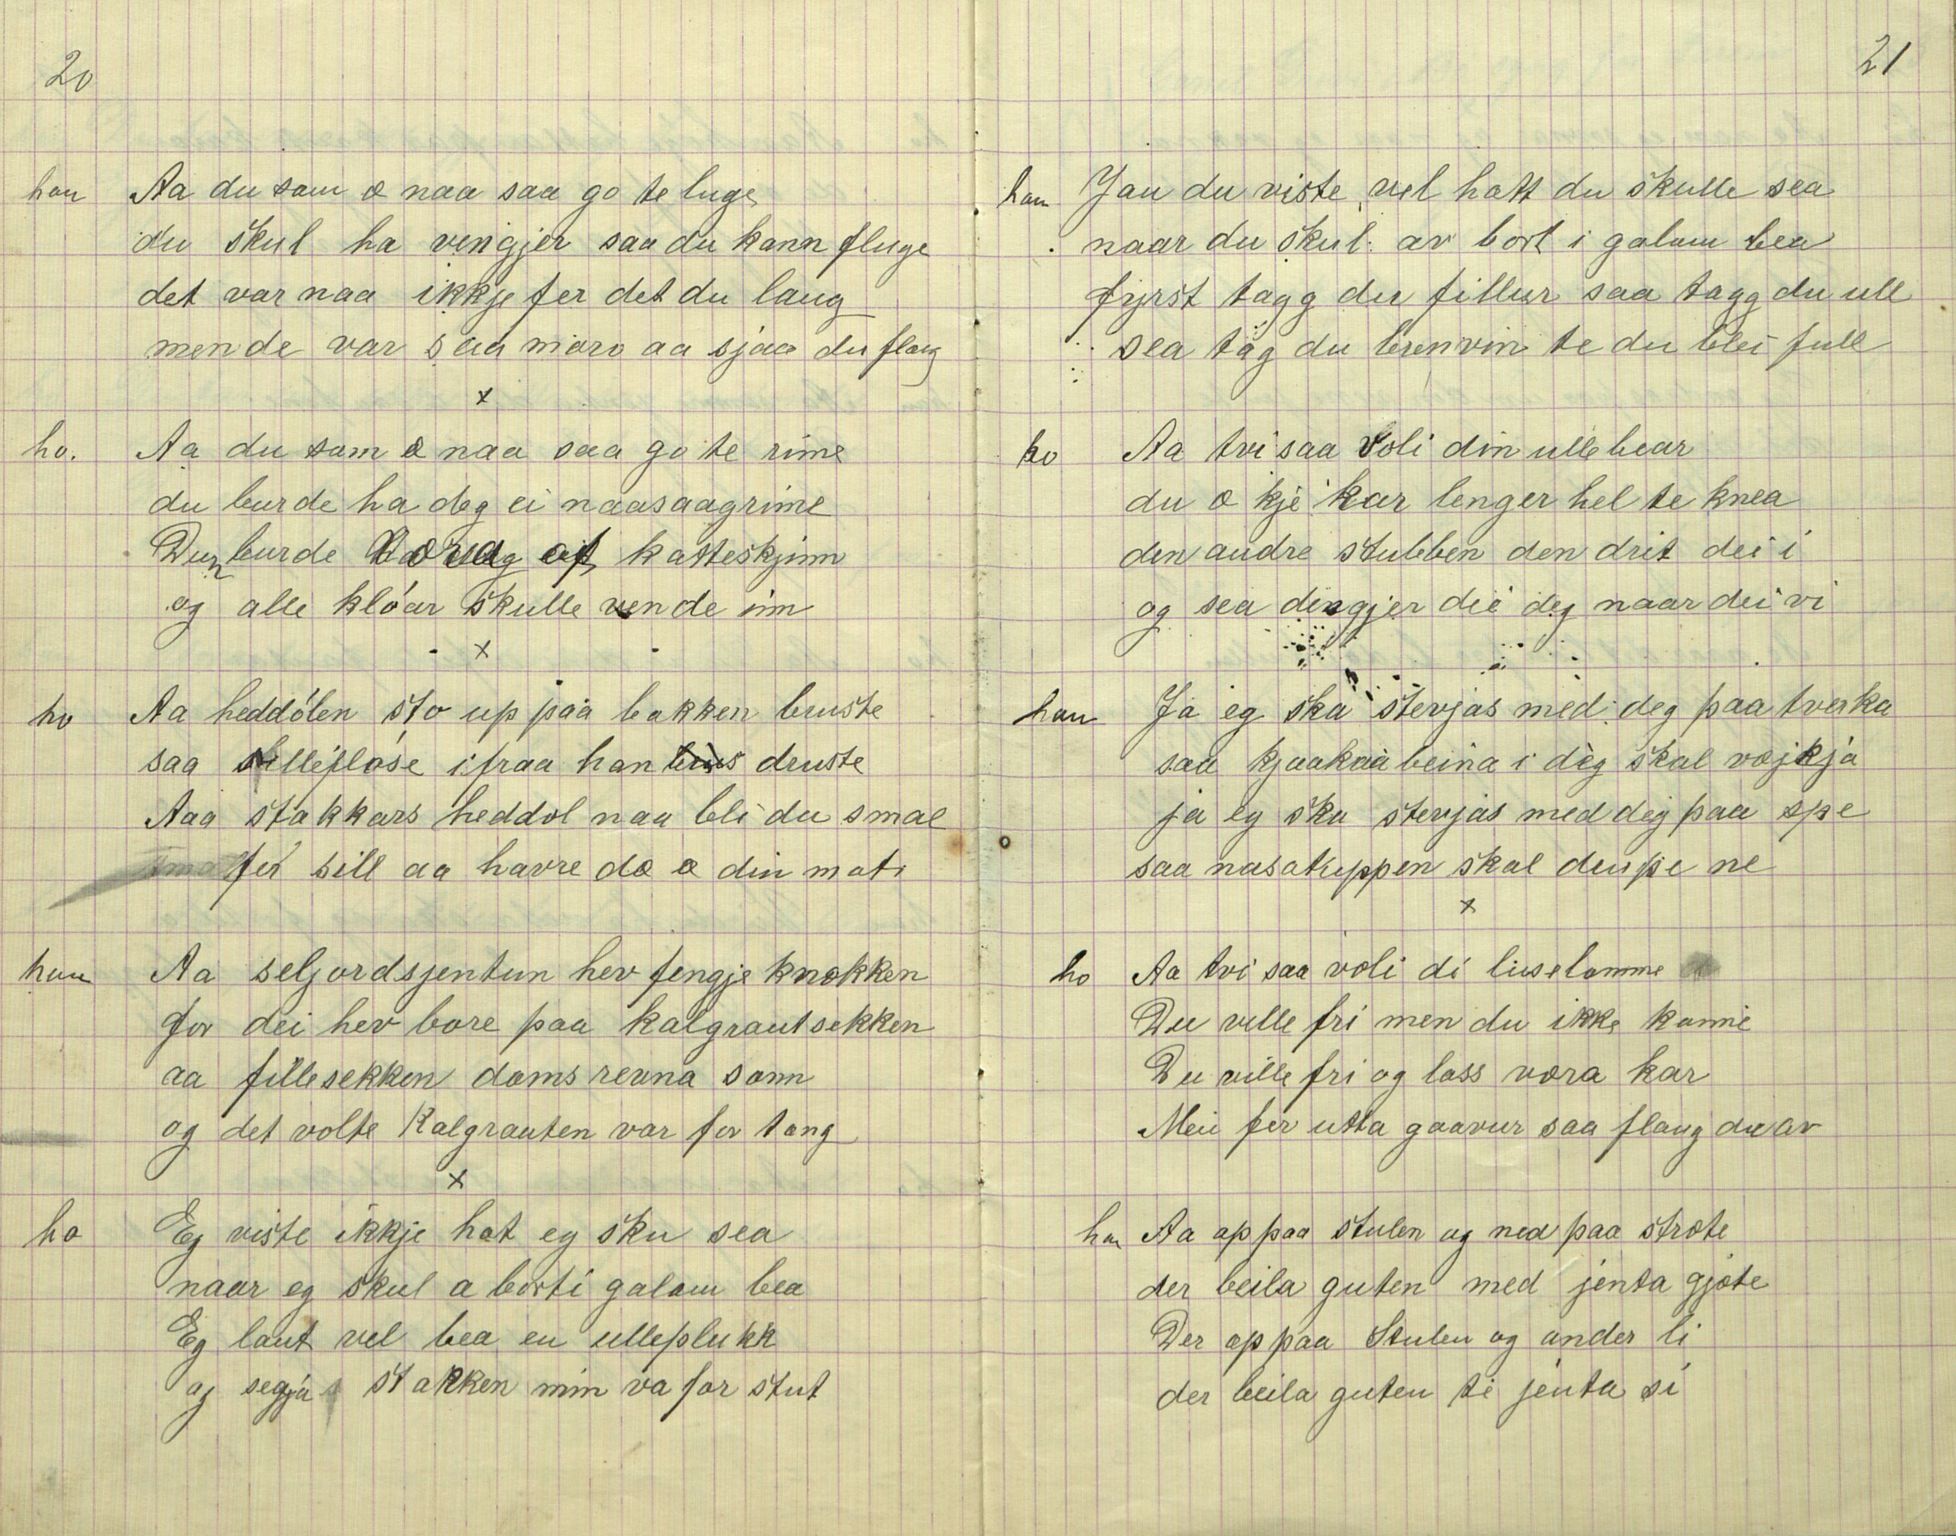 20
han Aa du som æ naa saa go te luge
du skul ha vengjer saa du kann fluge
det var naa ikkje fer det du laug
men de var saa moro aa sjaa du flaug
x
ho. Aa du som æ naa saa go te rime
du burde ha deg ei naasaagrime
Dun burde katteskjinn
og alle klóar skulle vende inn
x
ho Aa heddólen sto up paa bakken bruste
saa fillefløse ifraa han druste
Aaa stakkars heddol naa bli du smal
fer sill aa havre dæ æ din mat
han Aa seljordsjentun hev fengje knekken
for dei hev bore paa kalgrautsekken
aa fillesekken doms revna sonn
og det volte Kalgrauten var for tong
x
ho Eg viste ikkje hot eg sku sea
naar eg skul a borti galom bea
Eg laut vel bea en ulleplukk
og segja stakken min va for stut
21
han Jau du viste vel hott du skulle sea
naar du skul av bort i galom bea
fyrst tagg du fillur saa tagg du ull
sea tåg du brenvin te du blei full
ho Aa tvi saa voli din ullebear
du æ kje kar lenger hel te knea
den andre stubben den drit dei i
og sea dengjer dei deg naar dei vi
han Ja eg ska stevjas med deg paa tverka
saa kjaakaabeina i deg skal væjkja
ja eg ska stevjas med deg paa spe
saa nasatuppen skal drupe ne
x
ho Aa tvi saa voli di luselomme
Du ville fri men du ikke konne
Du ville fri og lass væra kar
Men fer utta gaavur saa flaug du av
han Aa op paa stulen og ned paa strote
der beila guten med jenta gjæte
Der op paa Stulen og under li
der beila guten ti jenta si